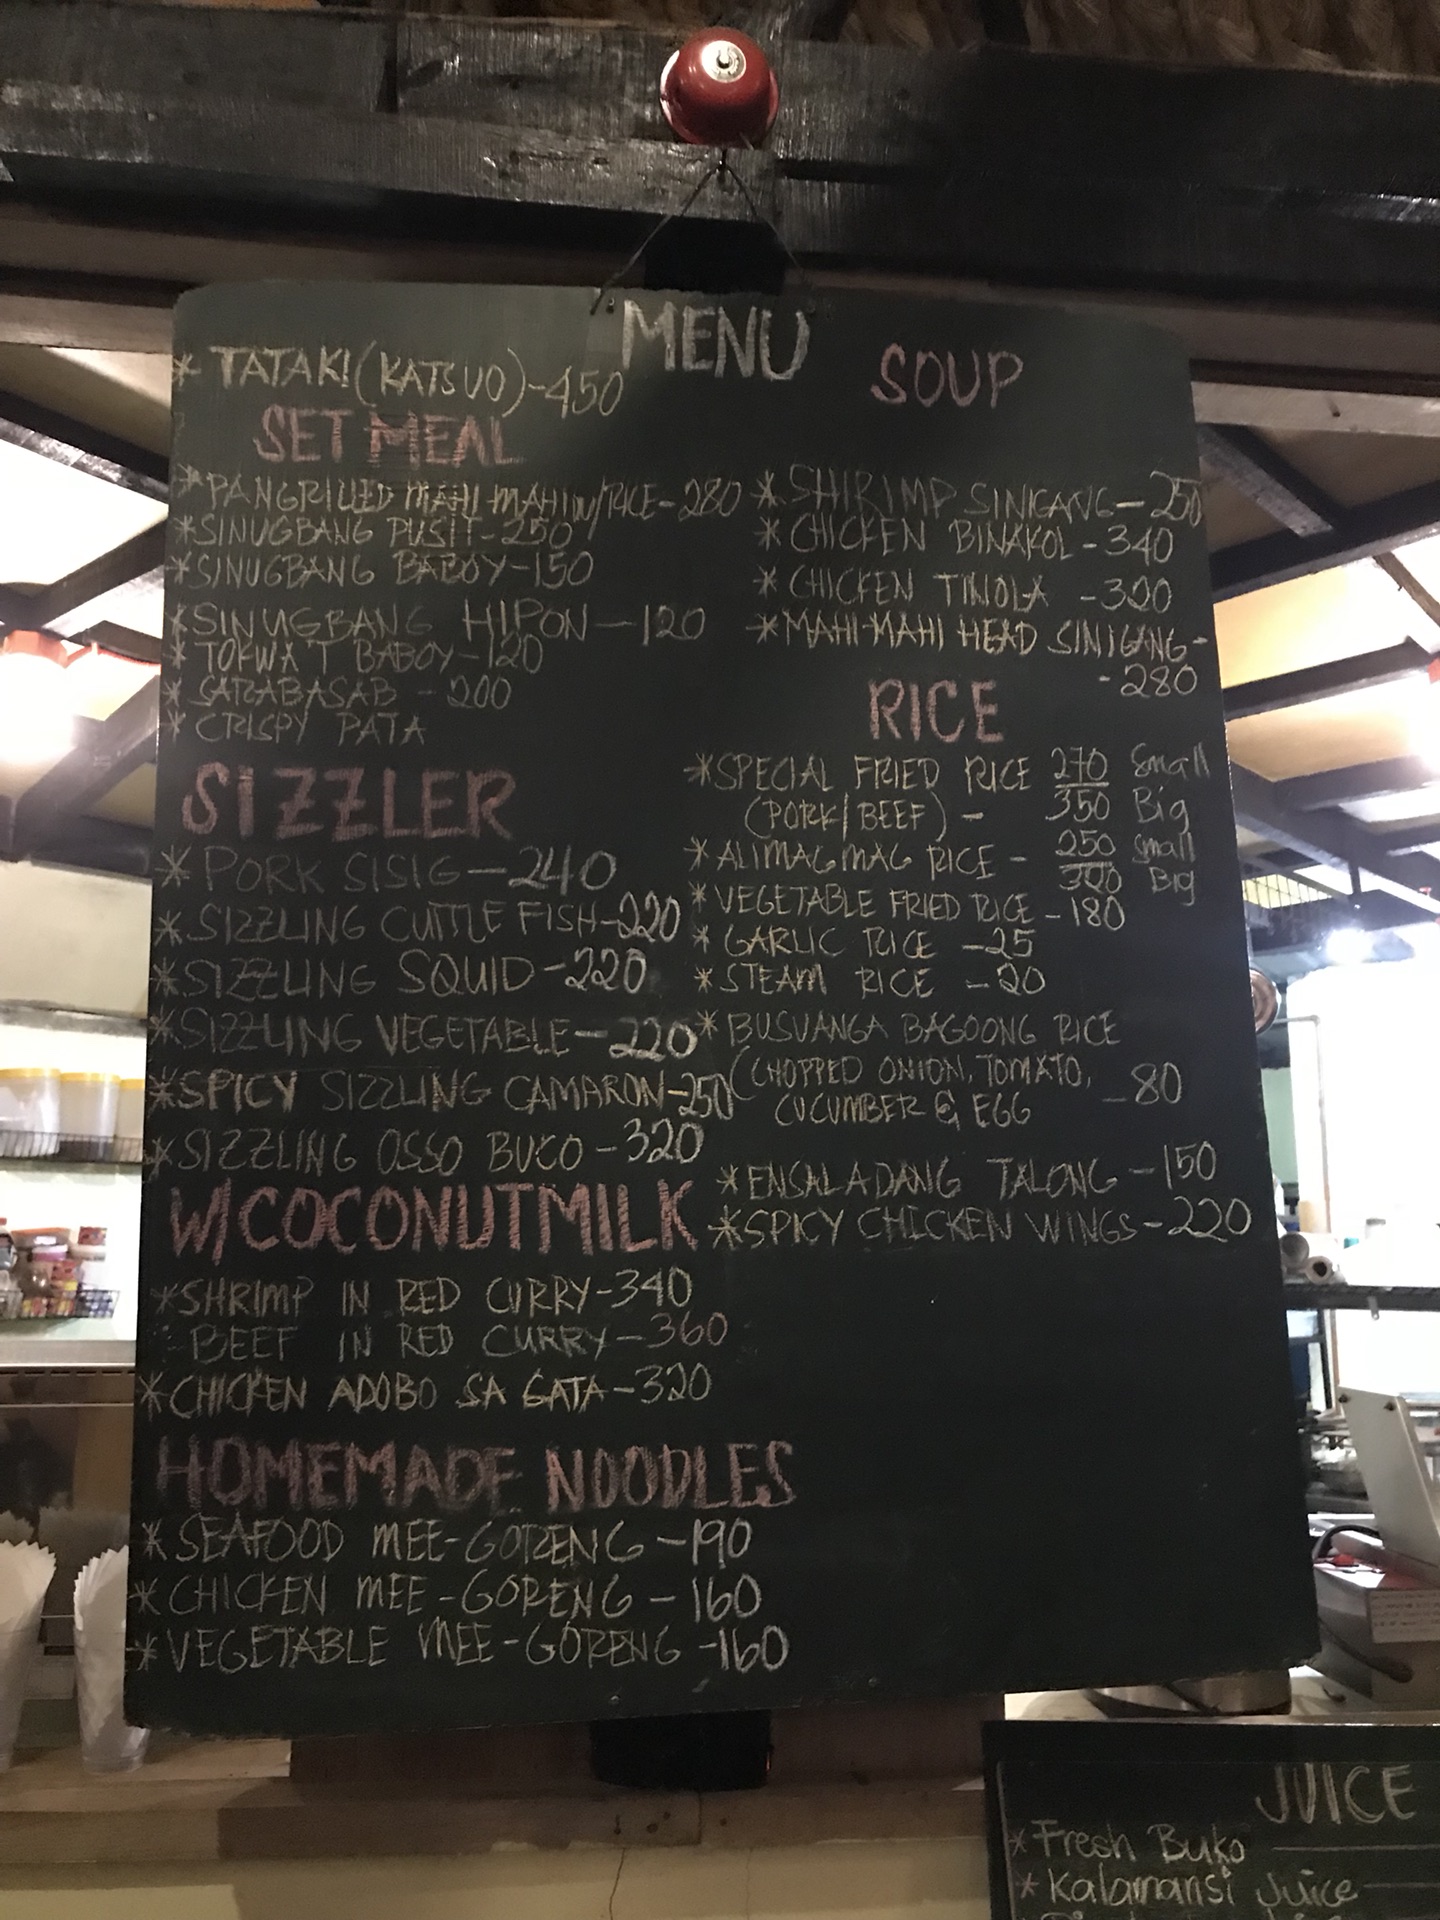 MENU
* TATAKI (KATSUO)-450
SET MEAL
*PANGRILLED MAHI-MAHI W/RICE-280
*SINUGBANG PUSIT-250
*SINUGBANG BABOY-150
*SINUGBANG HIPON-120
*TOKWA'T BABOY-120
*SARABASAB-200
*CRISPY PATA
SIZZLER
*PORK SISIG-240
*SIZZLING CUTTLE FISH-220
*SIZZLING SQUID-220
*SIZZLING VEGETABLE-220
*SPICY SIZZLING CAMARON-250
*SIZZLING OSSO BUCO-320
W/COCONUTMILK
*SHRIMP IN RED CURRY-340
BEEF IN RED CURRY-360
*CHICKEN ADOBO SA GATA-320
HOMEMADE NOODLES
*SEAFOOD MEE-GORENG-190
*CHICKEN MEE-GORENG-160
*VEGETABLE MEE-GORENG-160
SOUP
*SHRIMP SINIGANG-250
*CHICKEN BINAKOL-340
*CHICKEN TINOLA -320
*MAHI-MAHI HEAD SINIGANG-
-280
RICE
*SPECIAL FRIED RICE 270 Small
(PORK/BEEF) - 350 Big
*ALIMAGMAG RICE - 250 Small
320 Big
*VEGETABLE FRIED RICE-180
*GARLIC RICE -25
*STEAM RICE -20
*BUSUANGA BAGOONG RICE
(CHOPPED ONION, TOMATO,
CUCUMBER & EGG -80
*ENSALADANG TALONG-150
*SPICY CHICKEN WINGS-220
JUICE
* Fresh Buko
* Kalamansi Juice